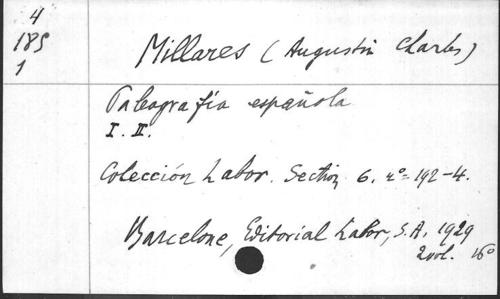 4
185
1
Millares (Augustin Charles)
Paleografía española
I. II.
Colección Labor. Section 6. nº=192-4.
Barcelone, Editorial Labor, S.A. 1929
2 vol. 16º